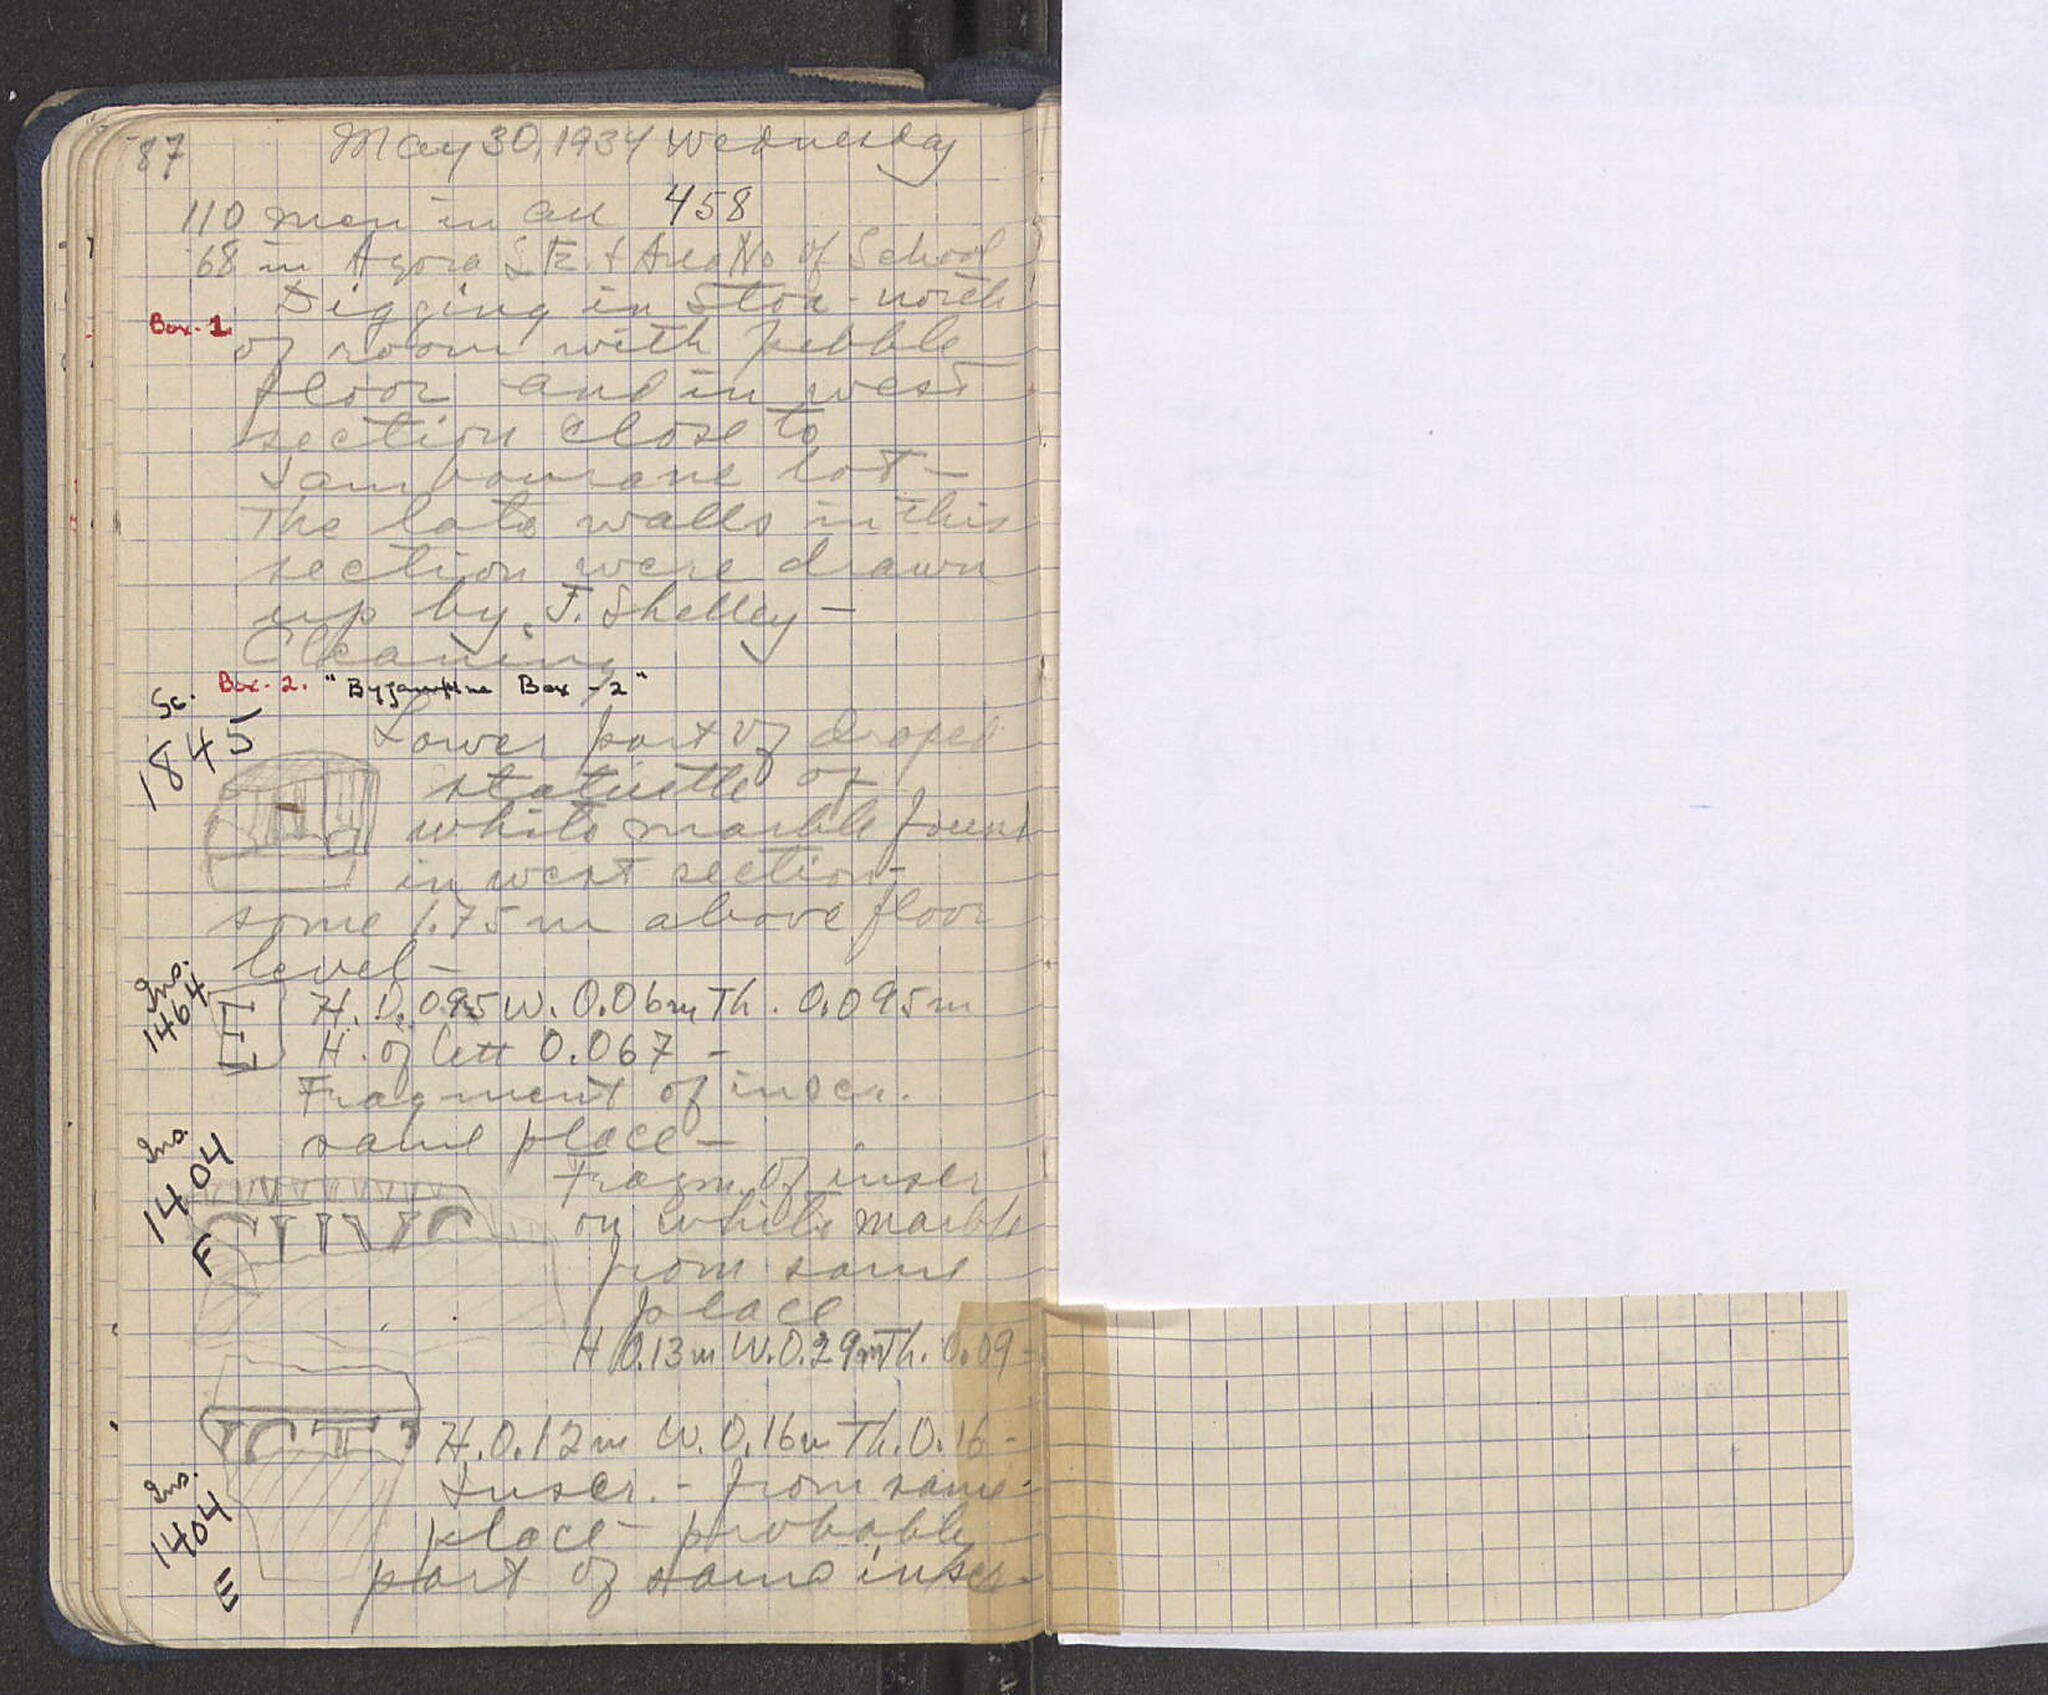 87 May 30, 1934 Wednesday
110 men in all 458
68 in Agora S E. + Area No of School
Digging in Stoa - north
Box - 1.
of room with pebble
floor and in west
section close to
Tambourane lot -
The late walls in this
section were drawn
up by J. Shelley -
Cleaning
Sc. 1845
Box - 2. "Byzantine Box - 2"
Lower part of draped
statuette of
white marble found
in west section -
some 1.75 m above floor
level -
Ins. 1464
H. 0.095 W. 0.06m Th. 0.095m
H. of lett 0.067 -
Fragment of inscr.
same place -
Ins. 1404 F
Fragm. of inscr
on white marble
from same
place
H 0.13m W. 0.29m Th. 0.09 -
H. 0.12m W. 0.16m Th. 0.16 -
Ins. 1404 E
Inscr. - from same
place - probably
part of same inscr -